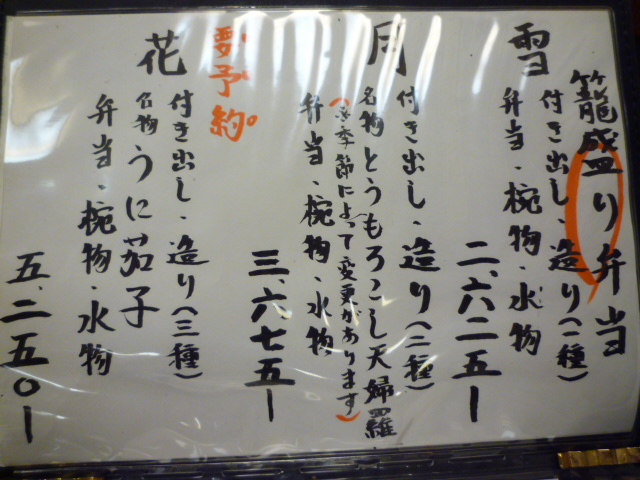 籠盛り弁当
雪
付き出し・造り(二種)
弁当・椀物・水物
二、六二五ー
月
付き出し・造り(二種)
名物とうもろこし天婦羅
(※季節によって変更があります)
弁当・椀物・水物
三、六七五ー
要予約。
花
付き出し・造り(三種)
名物うに茄子
弁当・椀物・水物
五、二五〇ー